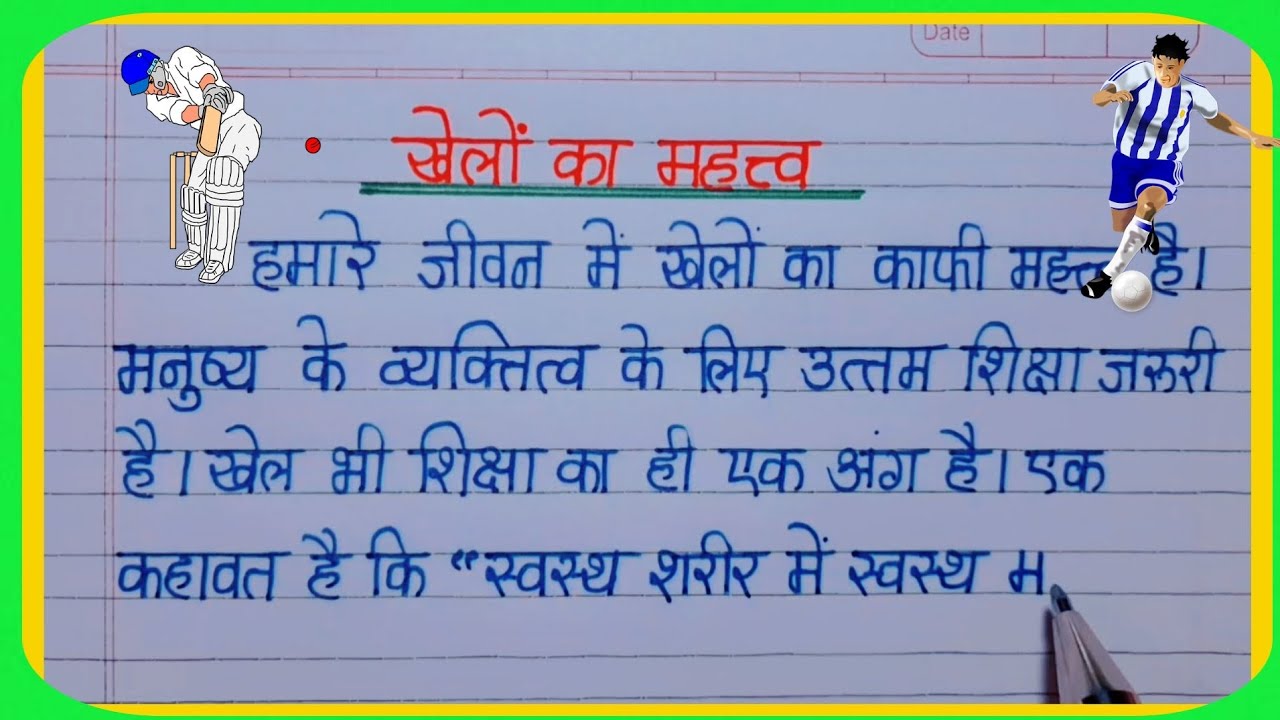 Date
खेलों का महत्त्व
हमारे जीवन में खेलों का काफी है।
मनुष्य के व्यक्तित्व के लिए उत्तम शिक्षा जरुरी
है। खेल भी शिक्षा का ही एक अंग है। एक
कहावत है कि "स्वस्थ शरीर में स्वस्थ म